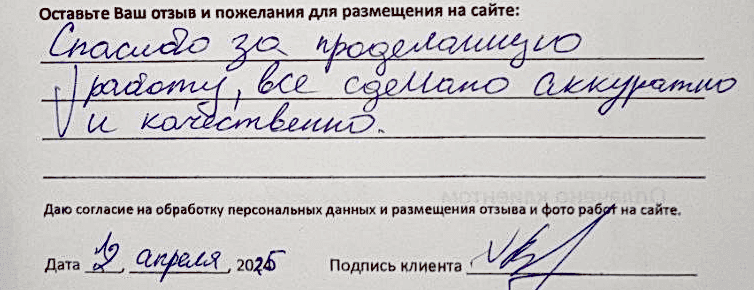 Оставьте Ваш отзыв и пожелания для размещения на сайте:
Спасибо за проделанную
работу, все сделано аккуратно
и качественно.
Даю согласие на обработку персональных данных и размещения отзыва и фото работ на сайте.
Дата апреля, 2025 Подпись клиента